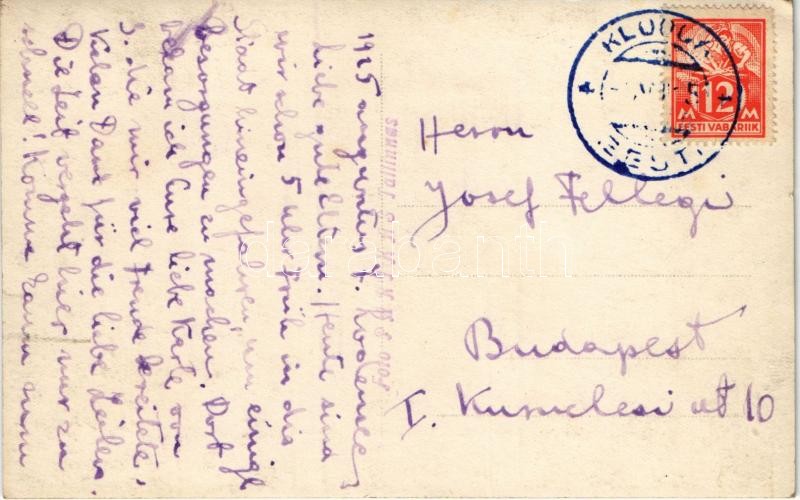 1925 augusztus 7.
Liebe gute Eltern. Heute sind
wir schon 5 Uhr früh in die
Stadt hineingefahren, um einige
Besorgungen zu machen. Dort
bekam ich Eure liebe Karte von
3. die mir viel Freude bereitete.
Vielen Dank für die liebe Zeilen.
Die Zeit vergeht hier nur zu
schnell! Komme kaum zum
Herrn
Josef Fellegi
Budapest
I. 10
KLOOGA
EESTI
12
M M
EESTI VABARIIK
darabanth